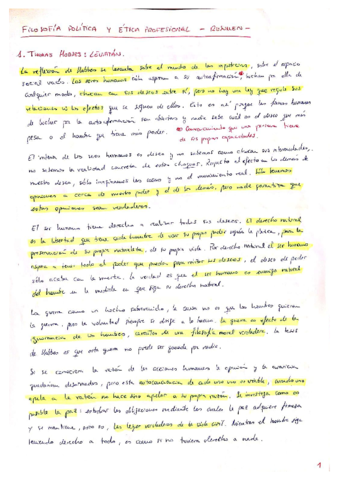 FILOSOFÍA POLÍTICA Y ÉTICA PROFESIONAL - RESUMEN -
1. THOMAS HOBBES: LEVIATÁN.
La reflexión de Hobbes se levanta sobre el mundo de las , sobre el espacio
social vacío. Los seres humanos sólo aspiran a su autoafirmación, luchan por ella de
cualquier modo, chocan con sus deseos entre sí, pero no hay una ley que regule sus
relaciones ni los efectos que se siguen de ellas. Esto es así porque las formas humanas
de luchar por la autoafirmación son abiertas y nadie sabe cuál es el deseo que más
pesa o el hombre que tiene más poder. Conocimiento que una persona tiene
de sus propias capacidades.
El interés de los seres humanos es deseo y no
no interesa la realidad concreta de estos choques. Respecto al efecto en los demás de
nuestro deseo, sólo imaginamos las cosas y no el conocimiento real. Sólo tenemos
opiniones a cerca de nuestro poder y el de los demás, pero nadie garantiza que
estas opiniones sean verdaderas.
El ser humano tiene derecho a realizar todos sus deseos. El derecho natural
es la libertad que tiene cada hombre de usar su propio poder según le plazca, para la
preservación de su propia naturaleza, de su propia vida. Por derecho natural el ser humano
aspira a tener todo el poder que pueda para realizar sus deseos, el deseo de poder
sólo acaba con la muerte. La verdad es que el ser humano es enemigo natural
del hombre en la medida en que siga su derecho natural.
La guerra como un destino , la causa no es que los hombres quieran
la guerra, pues la voluntad siempre se dirige a lo bueno. La guerra es efecto de la
ignorancia de los hombres, carentes de una filosofía moral verdadera. La tesis
de Hobbes es que esta guerra no puede ser ganada por nadie.
Si se conociera la razón de las acciones humanas la opinión y la avaricia
quedarían desarmadas, pero esta de cada uno no es viable, cuando uno
apela a la razón no hace sino apelar a su propia razón. Se investiga cómo es
posible la paz: estudiar las obligaciones mediante las cuales la paz adquiere firmeza
y se mantiene, esto es, las leyes verdaderas de la vida civil. Mientras el hombre siga
teniendo derecho a todo, es como si no tuviera derecho a nada.
1